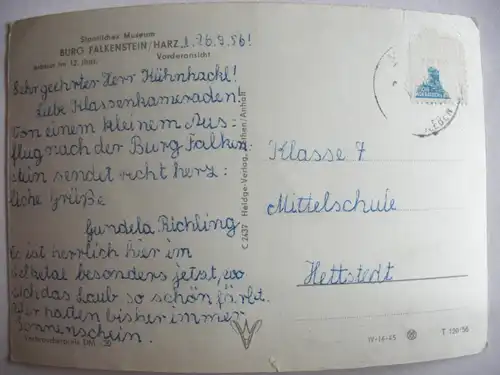 Staatliches Museum
BURG FALKENSTEIN/HARZ, d. 26.9.56!
erbaut im 12. Jhdt.
Vorderansicht
Sehr geehrter Herr Kühnhackl!
Liebe Klassenkameraden.
Von einem kleinem Aus-
flug nach der Burg Falken-
stein sendet recht herz-
liche Grüße
Gundela Richling
Es ist herrlich hier im
Selketal besonders jetzt, wo
sich das Laub so schön färbt.
Wir hatten bisher immer
Sonnenschein.
Verbraucherpreis DM
C 2437 Heldge-Verlag, Köthen/Anhalt
Klasse 7
Mittelschule
Hettstedt
IV-14-45
T 139/56